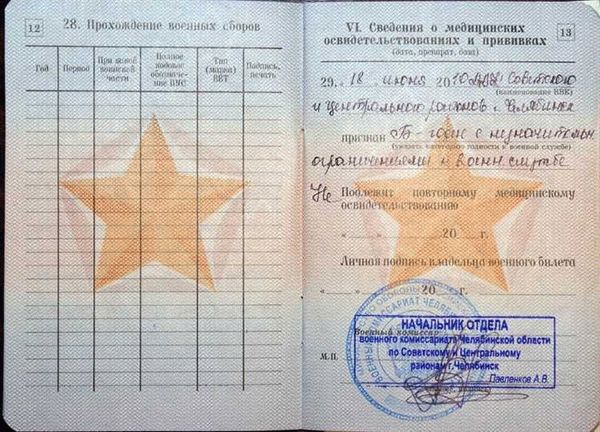 12
28. Прохождение военных сборов
Год
Период
При какой воинской части
Полное кодовое обозначение ВУС
Тип (марка) ВВТ
Подпись, печать
VI. Сведения о медицинских
13
освидетельствованиях и прививках
(дата, препарат, доза)
29. 18 июня 2010 Советского
(наименование ВВК)
и Центрального районов г. Челябинска
признан «Б - годен с незначительн
(указать категорию годности к военной службе)
ограничениями к воен службе
Не Подлежит повторному медицинскому
освидетельствованию
« » 20 г.
Личная подпись владельца военного билета
« » 20 г.
Военный комиссар
М.П.
НАЧАЛЬНИК ОТДЕЛА
военного комиссариата Челябинской области
по Советскому и Центральному
районам г.Челябинск
Павленков А.В.